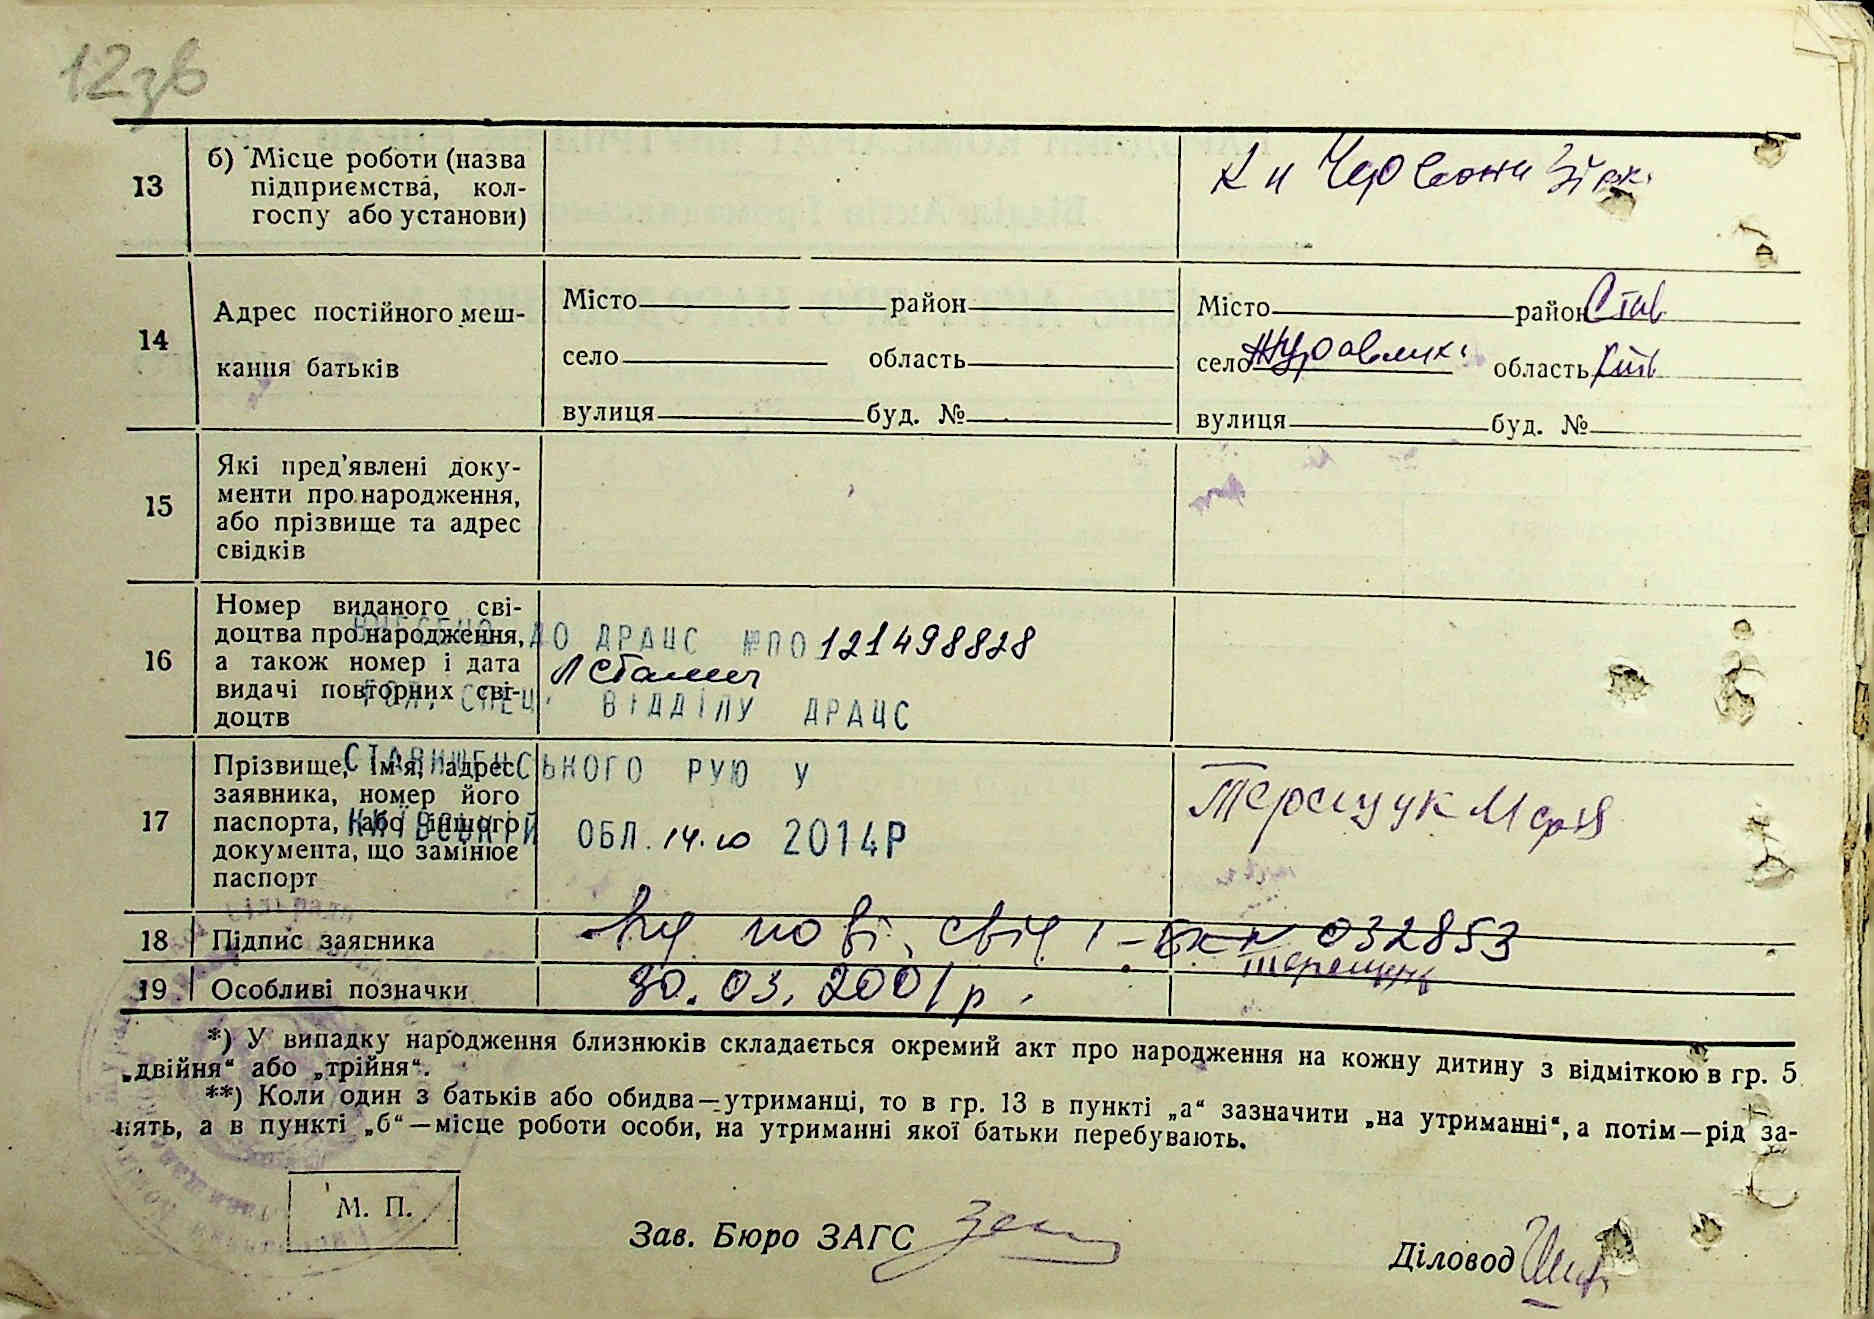 12зв
13
б) Місце роботи (назва
підприємства, кол-
госпу або установи)
14
Адрес постійного меш-
кання батьків
Місто район
село область
вулиця буд. №
Місто район Став
село Журавлиха область Київ
вулиця буд. №
15
Які пред'явлені доку-
менти про народження,
або прізвище та адрес
свідків
16
Номер виданого сві-
доцтва про народження,
а також номер і дата
видачі повторних сві-
доцтв
ВНЕСЕНО ДО ДРАЦС №ПО 121498828
ГОЛ. СПЕЦ. ВІДДІЛУ ДРАЦС
СТАВИЩЕНСЬКОГО РУЮ У
КИЇВСЬКІЙ ОБЛ. 14.10 2014Р
17
Прізвище, ім'я, адрес
заявника, номер його
паспорта, або іншого
документа, що замінює
паспорт
Терещук Марія
18
Підпис заявника
пові. свід 1-БКК 032853
Терещук
19
Особливі позначки
30.03.2001 р.
*) У випадку народження близнюків складається окремий акт про народження на кожну дитину з відміткою в гр. 5
„двійня“ або „трійня“.
**) Коли один з батьків або обидва—утриманці, то в гр. 13 в пункті „а“ зазначити „на утриманні“, а потім—рід за-
нять, а в пункті „б“—місце роботи особи, на утриманні якої батьки перебувають.
М. П.
Зав. Бюро ЗАГС
Діловод